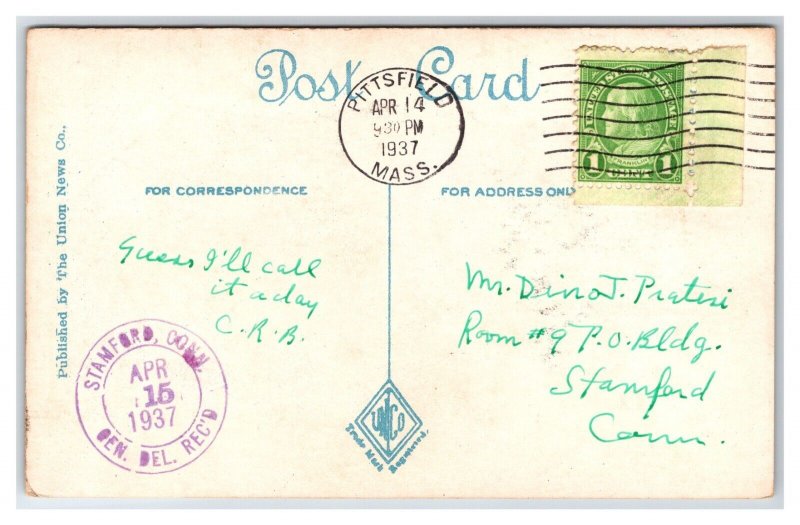 Post Card
PITTSFIELD
APR 14
930 PM
1937
MASS.
1 FRANKLIN 1
CENT
Published by The Union News Co.,
FOR CORRESPONDENCE
FOR ADDRESS ONLY
Guess I'll call
it a day
C.R.B.
Mr. Dino J. Pratesi
Room #9 P.O. Bldg.
Stamford
Conn.
STAMFORD, CONN.
APR
15
1937
GEN. DEL. REC'D
UNCo
Trade Mark Registered.